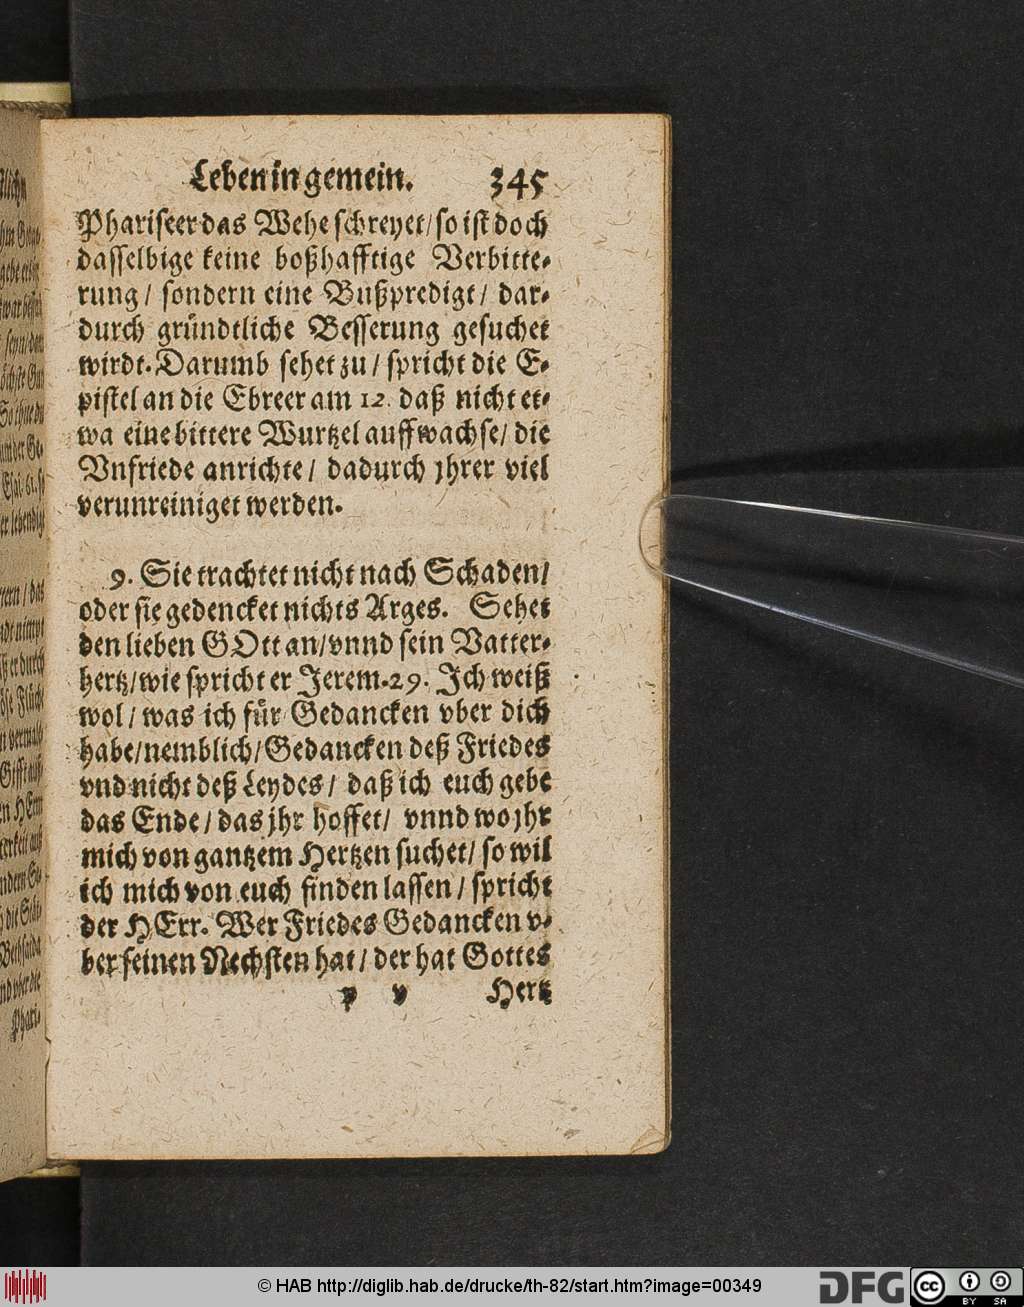 Leben in gemein. 345
Phariseer das Wehe schreyet/ so ist doch
dasselbige keine boßhafftige Verbitte-
rung/ sondern eine Bußpredigt/ dar-
durch gründtliche Besserung gesuchet
wirdt. Darumb sehet zu/ spricht die E-
pistel an die Ebreer am 12. daß nicht et-
wa eine bittere Wurtzel auffwachse/ die
Vnfriede anrichte/ dadurch jhrer viel
verunreiniget werden.
9. Sie trachtet nicht nach Schaden/
oder sie gedencket nichts Arges. Sehet
den lieben GOtt an/ vnnd sein Vatter-
hertz/ wie spricht er Jerem. 29. Ich weiß
wol/ was ich für Gedancken vber dich
habe/ nemblich/ Gedancken deß Friedes
vnd nicht deß Leydes/ daß ich euch gebe
das Ende/ das jhr hoffet/ vnnd wo jhr
mich von gantzem Hertzen suchet/ so wil
ich mich von euch finden lassen/ spricht
der HErr. Wer Friedes Gedancken v-
ber seinen Nechsten hat/ der hat Gottes
y v Hertz
© HAB http://diglib.hab.de/drucke/th-82/start.htm?image=00349
DFG
cc BY SA